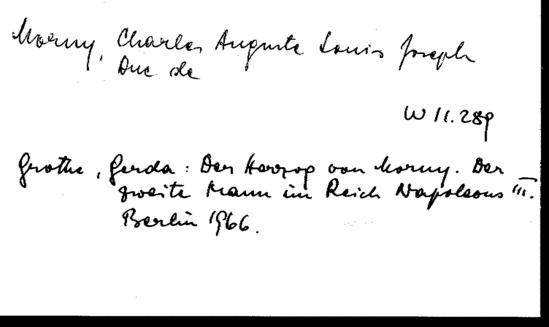 Morny, Charles Auguste Louis Joseph
Duc de
W 11.289
Grothe, Gerda: Der Herzog von Morny. Der
zweite Mann im Reich Napoleons III.
Berlin 1966.